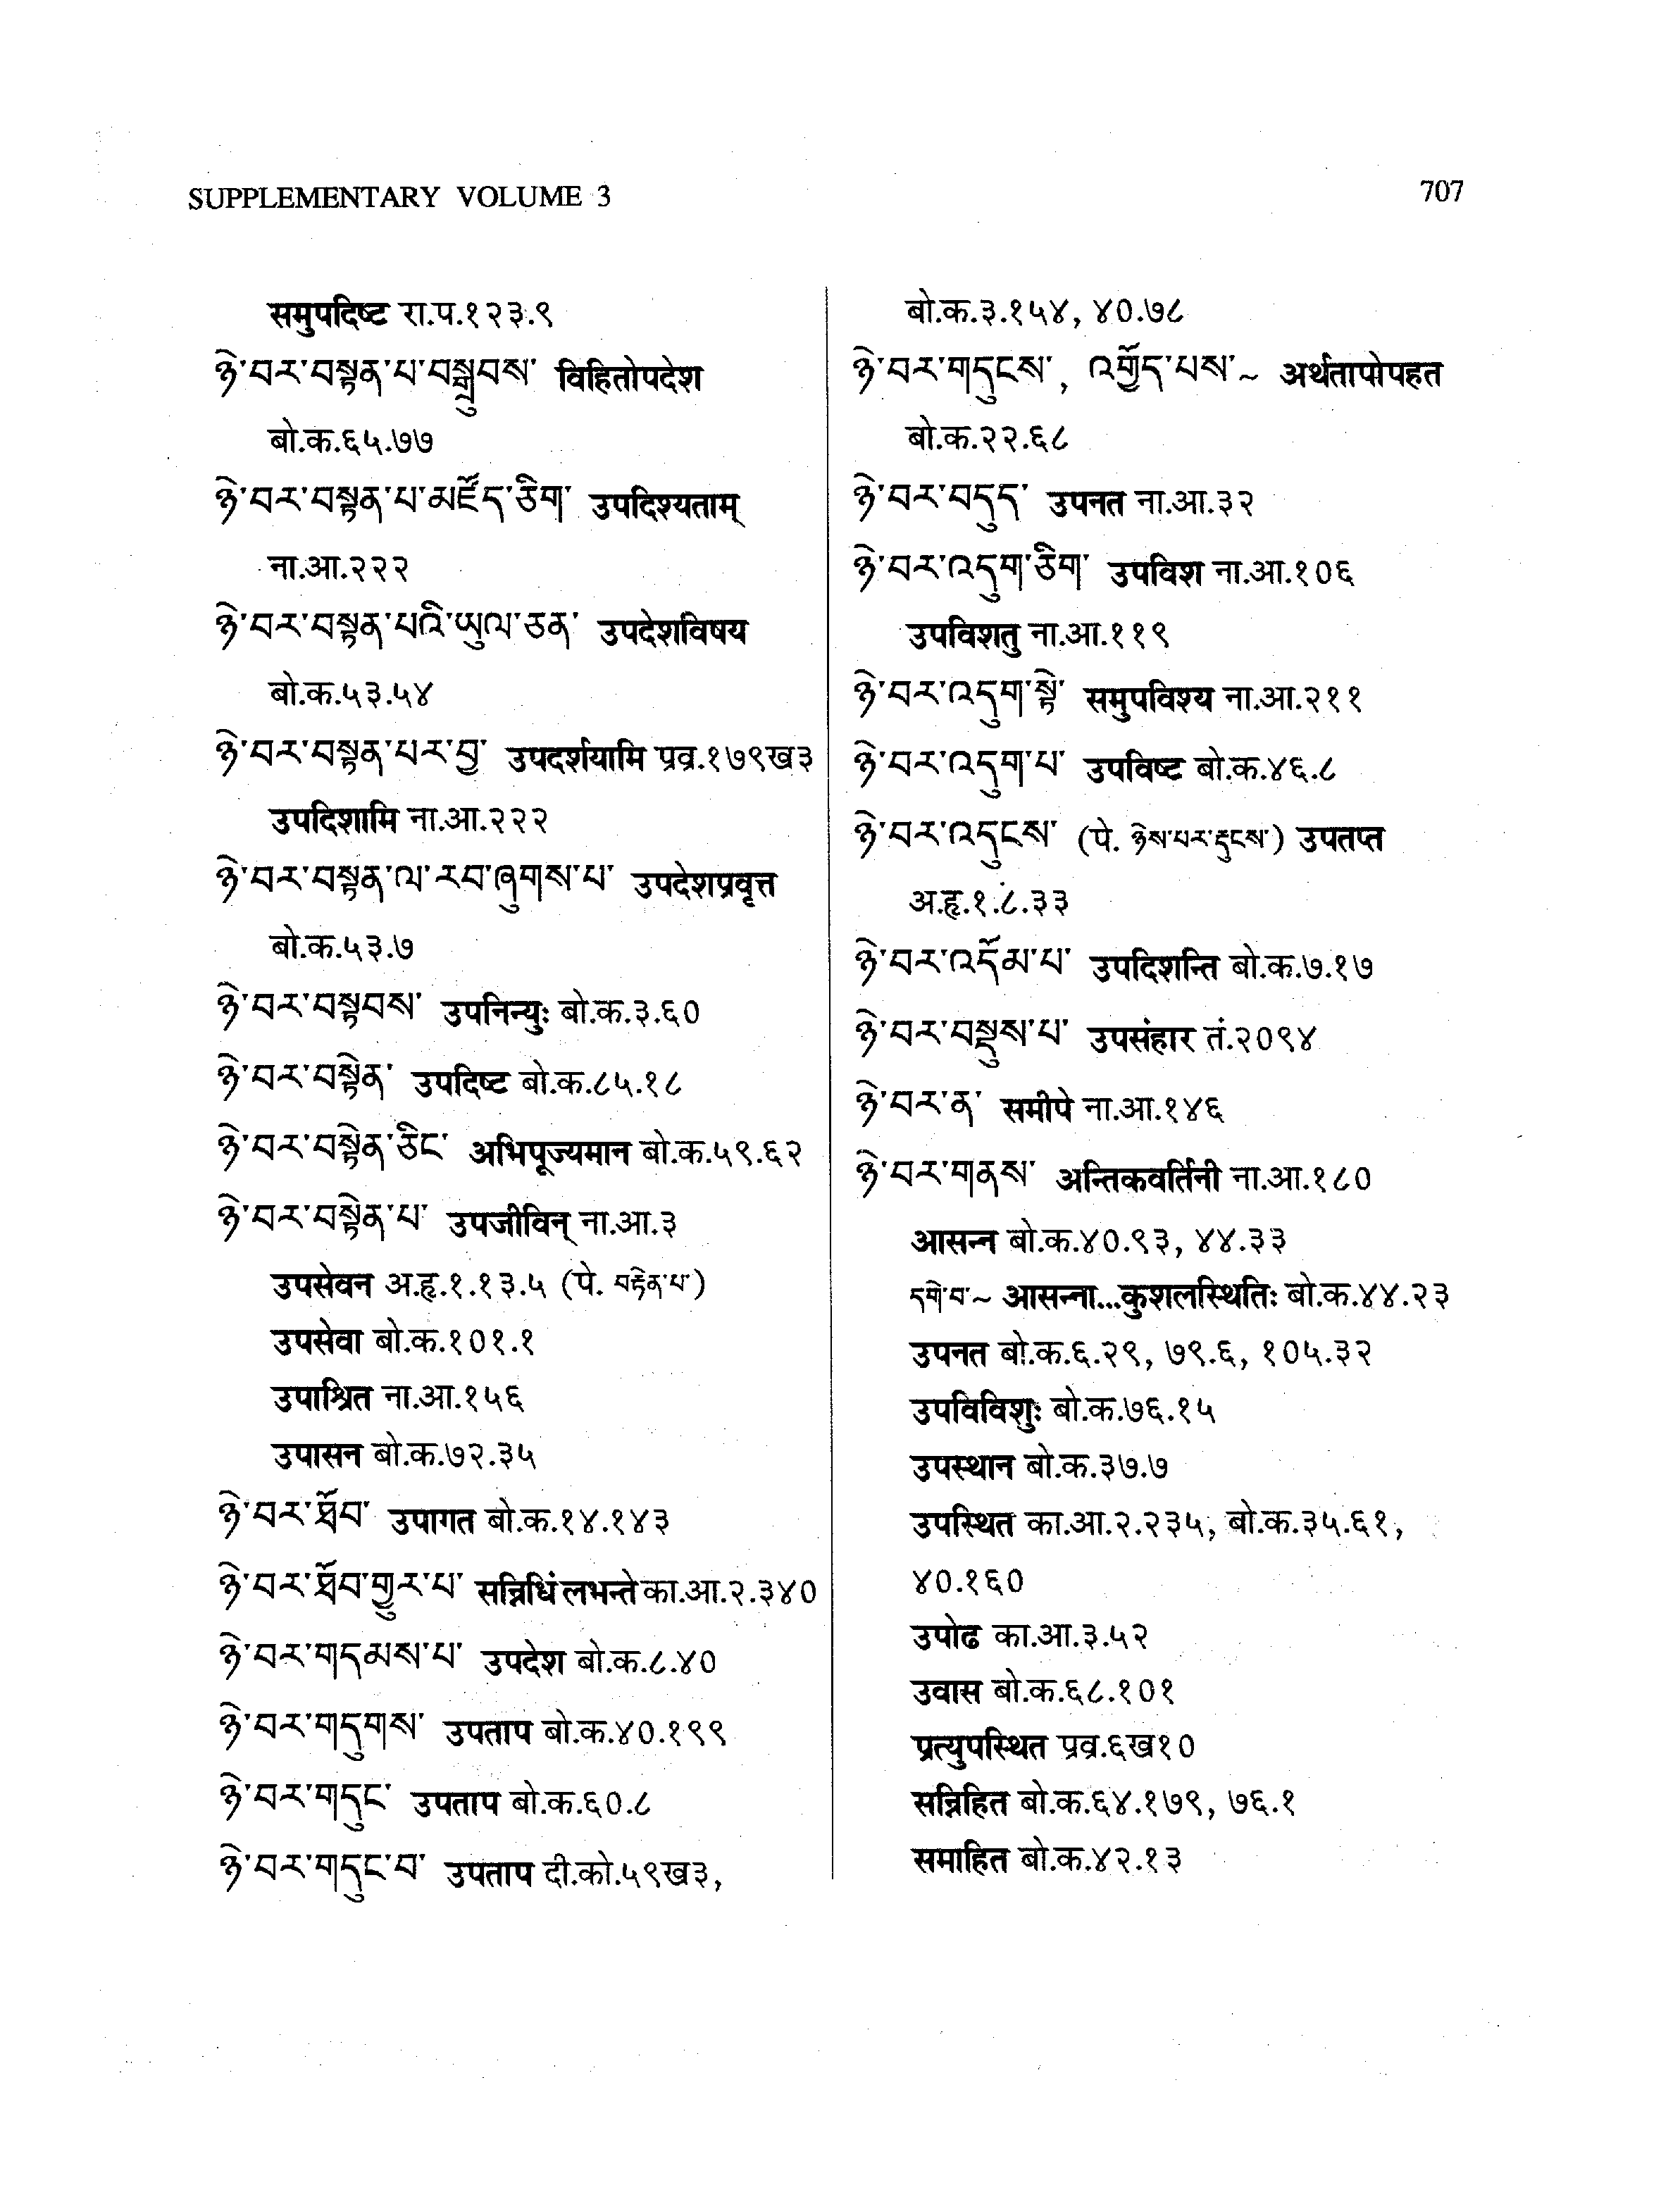 SUPPLEMENTARY VOLUME 3
707
समुपदिष्ट रा.प.१२३.९
ཉེ་བར་བསྟན་པ་བསྒྲུབས་ विहितोपदेश
बो.क.६५.७७
ཉེ་བར་བསྟན་པ་མཛོད་ཅིག་ उपदिश्यताम्
ना.आ.२२२
ཉེ་བར་བསྟན་པའི་ཡུལ་ཅན་ उपदेशविषय
बो.क.५३.५४
ཉེ་བར་བསྟན་པར་བྱ་ उपदर्शयामि प्रव्र.१७९ख३
उपदिशामि ना.आ.२२२
ཉེ་བར་བསྟན་ལ་རབ་ཞུགས་པ་ उपदेशप्रवृत्त
बो.क.५३.७
ཉེ་བར་བསྟབས་ उपनिन्युः बो.क.३.६०
ཉེ་བར་བསྟེན་ उपदिष्ट बो.क.८५.१८
ཉེ་བར་བསྟེན་ཅིང་ अभिपूज्यमान बो.क.५९.६२
ཉེ་བར་བསྟེན་པ་ उपजीविन् ना.आ.३
उपसेवन अ.हृ.१.१३.५ (पे. བརྟེན་པ་)
उपसेवा बो.क.१०१.१
उपाश्रित ना.आ.१५६
उपासन बो.क.७२.३५
ཉེ་བར་ཐོབ་ उपागत बो.क.१४.१४३
ཉེ་བར་ཐོབ་གྱུར་པ་ सन्निधिं लभन्ते का.आ.२.३४०
ཉེ་བར་གདམས་པ་ उपदेश बो.क.८.४०
ཉེ་བར་གདུགས་ उपताप बो.क.४०.१९९
ཉེ་བར་གདུང་ उपताप बो.क.६०.८
ཉེ་བར་གདུང་བ་ उपताप दी.को.५९ख३,
बो.क.३.१५४, ४०.७८
ཉེ་བར་གདུངས་, འགྱོད་པས་~ अर्थतापोपहत
बो.क.२२.६८
ཉེ་བར་བདུད་ उपनत ना.आ.३२
ཉེ་བར་འདུག་ཅིག་ उपविश ना.आ.१०६
उपविशतु ना.आ.११९
ཉེ་བར་འདུག་སྟེ་ समुपविश्य ना.आ.२११
ཉེ་བར་འདུག་པ་ उपविष्ट बो.क.४६.८
ཉེ་བར་འདུངས་ (पे. ཉེས་པར་རྡུངས་) उपतप्त
अ.हृ.१.८.३३
ཉེ་བར་འདོམ་པ་ उपदिशन्ति बो.क.७.१७
ཉེ་བར་བསྡུས་པ་ उपसंहार तं.२०९४
ཉེ་བར་ན་ समीपे ना.आ.१४६
ཉེ་བར་གནས་ अन्तिकवर्तिनी ना.आ.१८०
आसन्न बो.क.४०.९३, ४४.३३
དགེ་བ་~ आसन्ना...कुशलस्थितिः बो.क.४४.२३
उपनत बो.क.६.२९, ७९.६, १०५.३२
उपविविशुः बो.क.७६.१५
उपस्थान बो.क.३७.७
उपस्थित का.आ.२.२३५, बो.क.३५.६१,
४०.१६०
उपोढ का.आ.३.५२
उवास बो.क.६८.१०१
प्रत्युपस्थित प्रव्र.६ख१०
सन्निहित बो.क.६४.१७९, ७६.१
समाहित बो.क.४२.१३